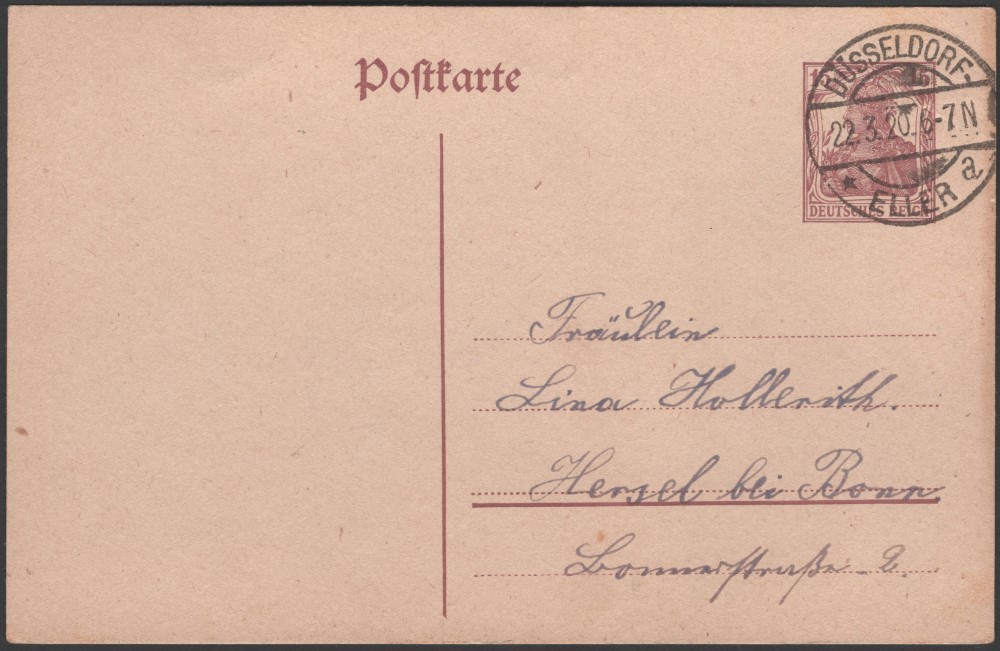 Postkarte
DÜSSELDORF-
22.3.20. 6-7N
ELLER a
1
DEUTSCHES REICH
Fräulein
Lina Hollerith.
Hersel bei Bonn
Bonnerstraße 2.